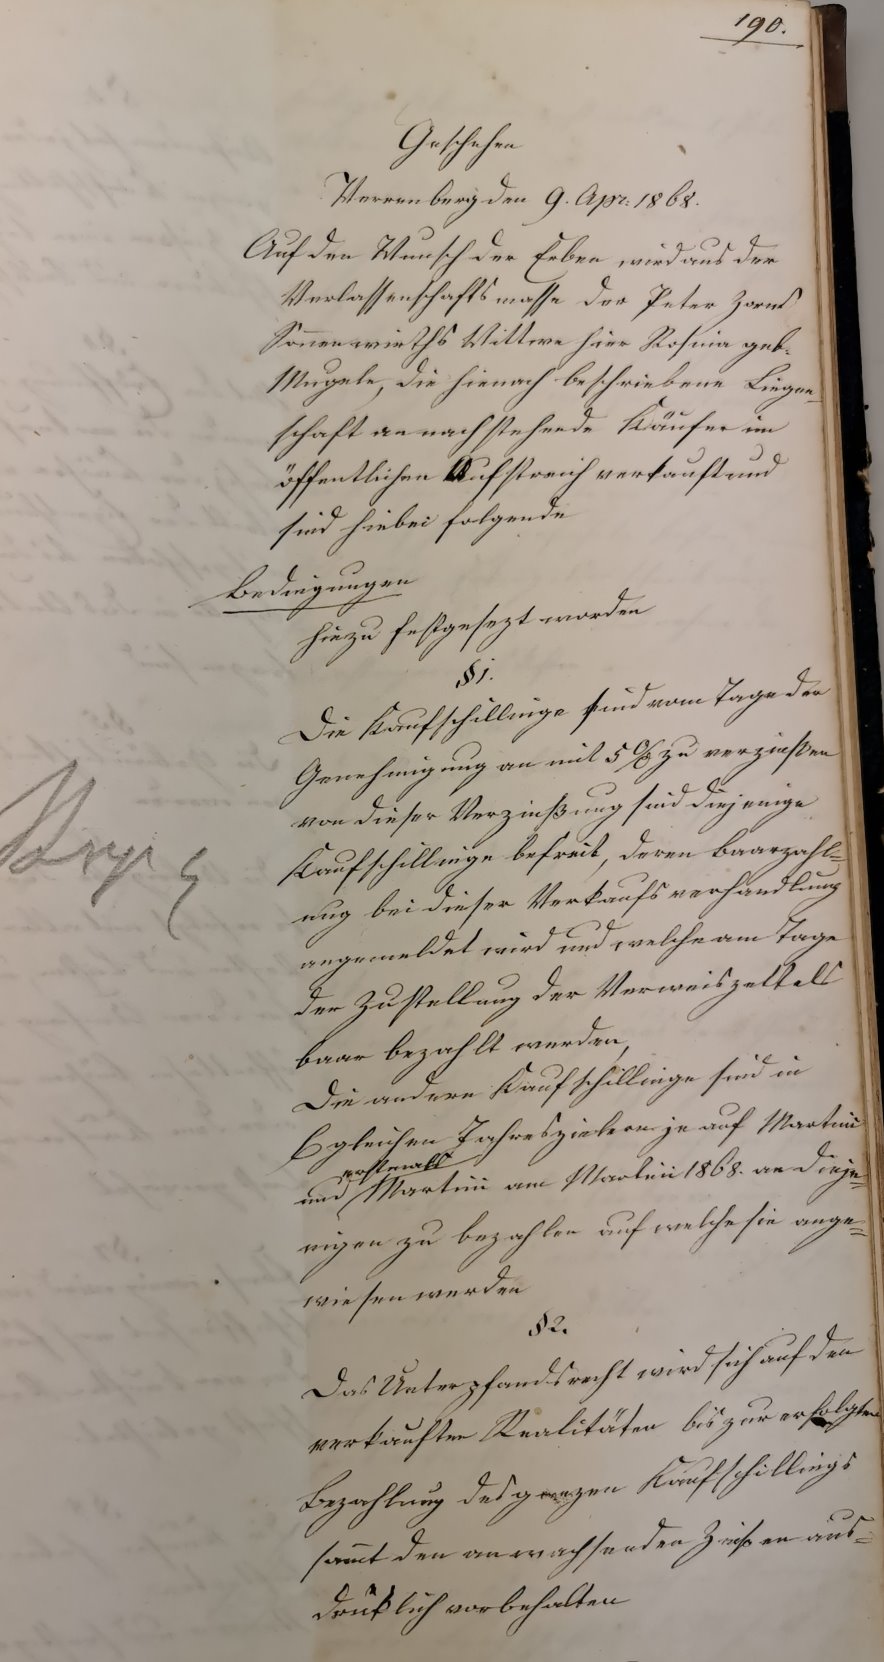 190.
Geschehen
Verrenberg den 9. Apr: 1868.
Auf den Wunsch der Erben wird aus der
Verlassenschaftsmasse der Peter Zorns
Sonnenwirths Wittwe hier Rosina geb.
Mugele, die hienach beschriebene Liegen-
schaft an nachstehende Käufer im
öffentlichen Aufstreich verkauft und
sind hiebei folgende
Bedingungen
hiezu festgesezt worden
§ 1.
Die Kaufschillinge sind vom Tage der
Genehmigung an mit 5 % zu verzinßen
von dieser Verzinßung sind diejenige
Kaufschillinge befreit, deren Baarzahl=
ung bei dieser Verkaufsverhandlung
angemeldet wird und welche am Tage
der Zustellung der Verweiszettels
baar bezahlt werden,
Die andern Kaufschillinge sind in
6 gleichen Jahreszielern je auf Martini
erstmals
und Martini am Martini 1868. an dieje=
nigen zu bezahlen auf welche sie ange=
wiesen werden
§ 2.
Das Unterpfandsrecht wird sich auf den
verkauften Realitäten bis zur erfolgten
Bezahlung des ganzen Kaufschillings
sammt den anwachsenden Zinßen aus=
drüklich vorbehalten